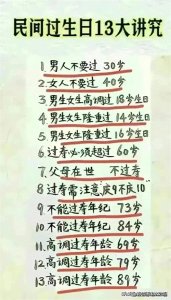 民间过生日13大讲究
1.男人不要过 30岁
2.女人不要过 40岁
3.男生女生高调过18岁生日
4.男生女生隆重过14岁生日
5.男生女生隆重过16岁生日
6.过寿必须超过 60岁
7.父母在世 不过寿
8.过寿需注意庆9不庆10
9.不能过寿年纪 73岁
10.不能过寿年纪 84岁
11.高调过寿年龄 69岁
12.高调过寿年龄 79岁
13.高调过寿年龄 89岁